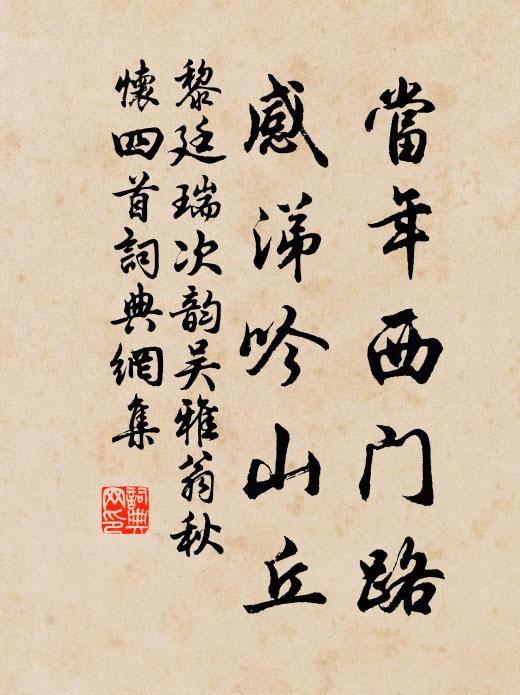 當年西门路
感涕吟山丘
黎廷瑞次韵吴雅翁秋
懷四首詞典網集
詞典网印